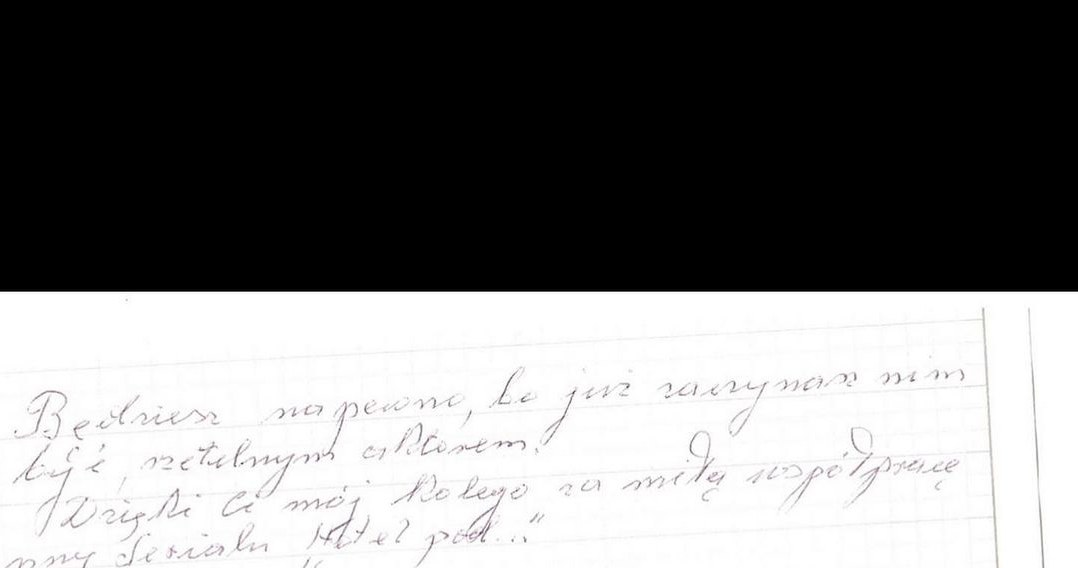 Będziesz na pewno, bo już zaczynasz nim
być, rzetelnym aktorem.
Dzięki Ci mój Kolego za miłą współpracę
przy Serialu „Hotel pod..."